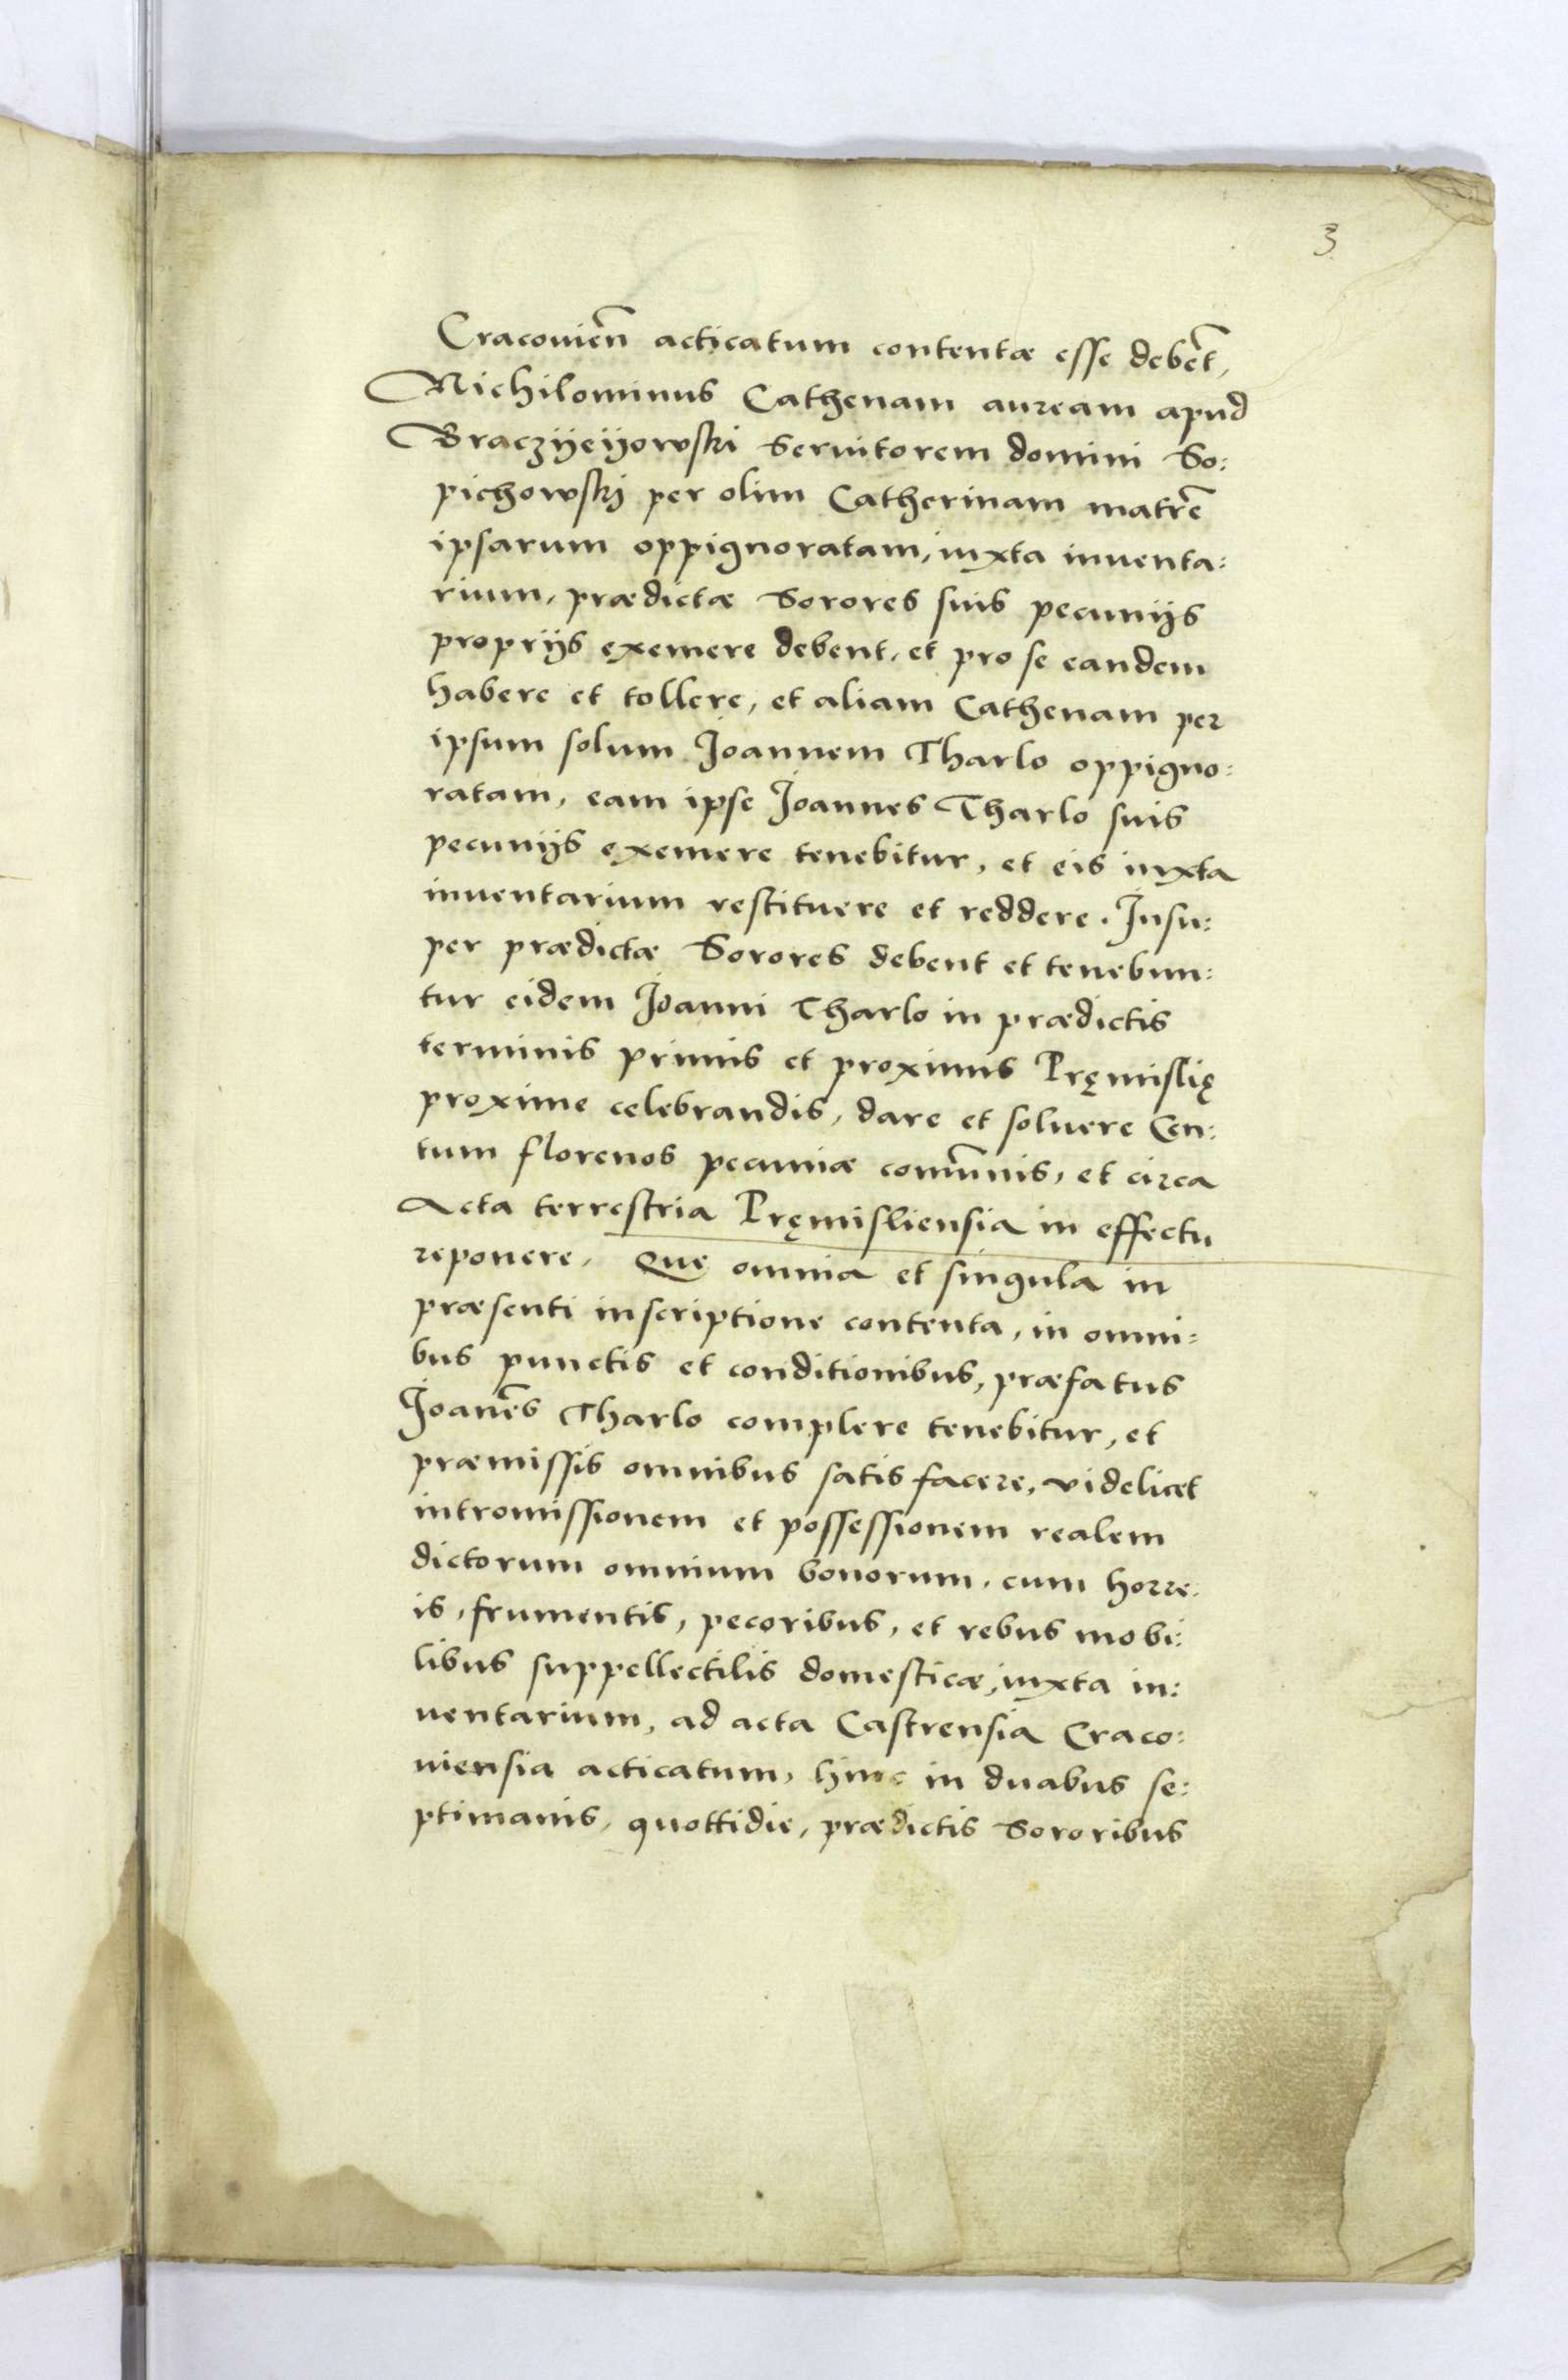 3
Cracouien̄ acticatum contentæ esse debēt,
Nichilominus Cathenam auream apud
Braczÿeÿowski Seruitorem domini So:
pichowskj per olim Catherinam matrē
ipsarum oppignoratam, iuxta inuenta:
rium, prædictæ Sorores suis pecunijs
proprijs exemere debent, et pro se eandem
habere et tollere, et aliam Cathenam per
ipsum solum Joannem Tharlo oppigno:
ratam, eam ipse Joannes Tharlo suis
pecunijs exemere tenebitur, et eis iuxta
inuentarium restituere et reddere. Insu:
per prædictæ Sorores debent et tenebun:
tur eidem Joanni Tharlo in prædictis
terminis primis et proximis Pręmislię
proxime celebrandis, dare et soluere Cen:
tum florenos pecuniæ com̄unis, et circa
Acta terrestria Pręmisliensia in effectu
reponere. Quę omnia et singula in
præsenti inscriptione contenta, in omni:
bus punctis et conditionibus, præfatus
Joanēs Tharlo complere tenebitur, et
præmissis omnibus satisfacere, videlicet
intromissionem et possessionem realem
dictorum omnium bonorum, cum horre.
is, frumentis, pecoribus, et rebus mobi:
libus suppellectilis domesticæ, iuxta in:
uentarium, ad acta Castrensia Craco:
uiensia acticatum, hinc in duabus se:
ptimanis, quottidie, prædictis Sororibus